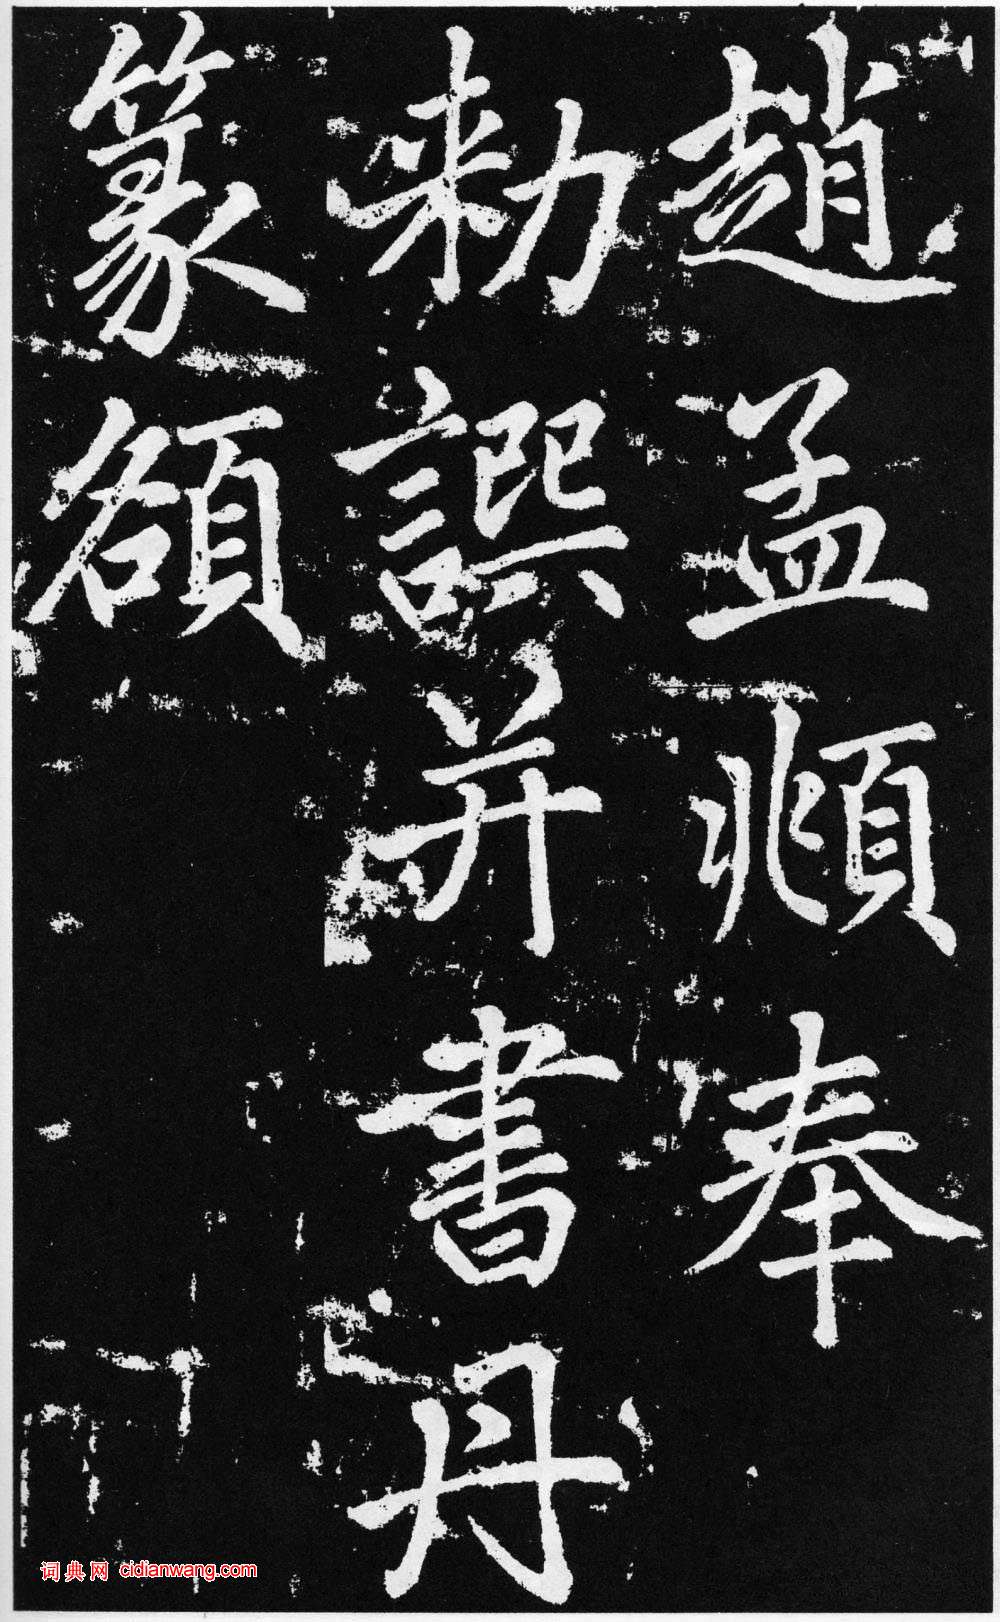 趙孟頫奉
勑譔并書丹
篆額
词典网 cidianwang.com